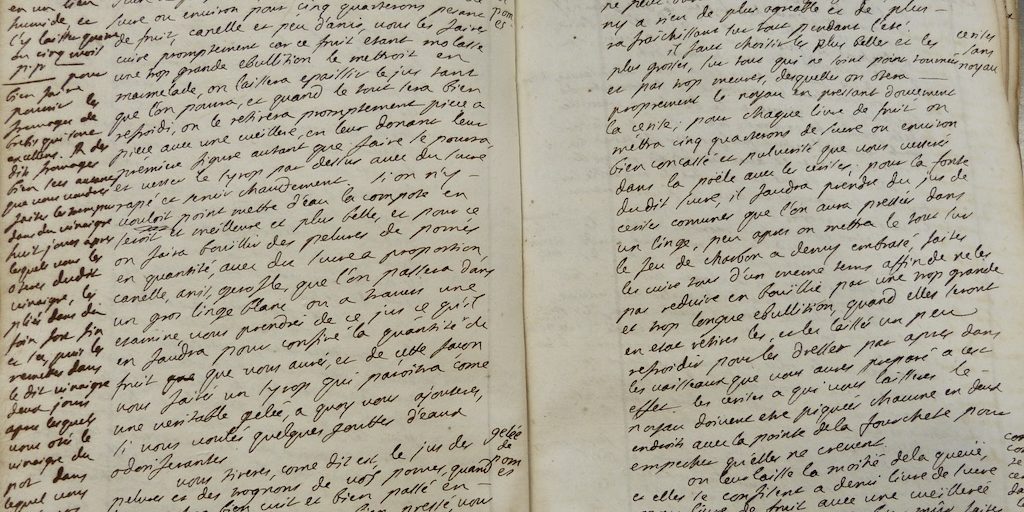 en un lieu
humide et
l'y laisser quatre
ou cinq mois
p:p:
bien faire
pourrir les
fromages de
brebis qui sont
excellens. R des
dit fromages
bien secs autant
que vous voudres
faites les tremper
dans du vinaigre
huit jours apres
lequels vous les
oteres dudit
vinaigre, les
pliés dans du
foin fort fin
et sec, puis les
remettes dans
le dit vinaigre
deux jours
apres lesquels
vous oté le
vinaigre du
pot dans
lequel vous
sucre ou environ pour cinq quarterons pesant
de fruit, canelle et peu d'anis, vous les faires
cuire promptement car ce fruit etant molasse
une trop grande ebullition le mettroit en
marmelade, on laissera epaissir le jus tant
que l'on pourra, et quand le tout sera bien
refroidi, on le retirera promptement piece a
piece avec une cueillere, en leur donant leur
premiere figure autant que faire se pourra,
et verser le syrop par dessus avec du sucre
rapé et servir chaudement. si on n'y
vouloit point mettre d'eau la compote en
seroit et meilleure et plus belle, et pour ce
on faira bouillir des pelures de pomes
en quantité, avec du sucre a proportion,
canelle, anis, gerofle, que l'on passera dans
un gros linge blanc ou a travers une
estamine vous prendres de ce jus ce qu'il
en faudra pour confire la quantité de
fruit que vous aures, et de cette facon
vous faites un syrop qui paroitra come
une veritable gelée, a quoy vous ajouteres,
si vous voulés quelques gouttes d'eaux
odoriferantes
vous tireres, come dit est, le jus des
pelures et des trognons de vos pomes, quand
bien cuit et bien passé en
pressé, vous
pom
es.
gelée
de
pom
es
n'y a rien de plus agreable et de plus
rafraichissant sur tout pendant l'été.
il faut choisir les plus belles et les
plus grosses, sur tous qui ne soint point tournées
et pas trop meures, desquelles on otera
proprement le noyau en pressant doucement
la cerise; pour chaque livre de fruit on
mettra cinq quarterons de sucre ou environ
bien concassé et pulverisé que vous verserés
dans la poele avec les cerises; pour la fonte
dudit sucre, il faudra prendre du jus de
cerises comunes que l'on aura pressées dans
un linge, peu apres on mettra le tout sur
le feu de charbon a demy embrasé, faites
les cuire tous d'un meme tems affin de ne les
pas reduire en bouillie par une trop grande
et trop longue ebullition, quand elles seront
en etat retirés les, et les laissés un peu
refroidir pour les dresser par apres dans
les vaisseaux que vous aures preparé a cest
effet. les cerises a qui vous laisseres le
noyau doivent etre piquées chacune en deux
endroits avec la pointe de la fourchete pour
empecher qu'elles ne crevent.
on leur laisse la moitié de la queue,
et elles se confisent a demi livre de sucre
livre de fruit avec une cueillereé
cerises
sans
noyau